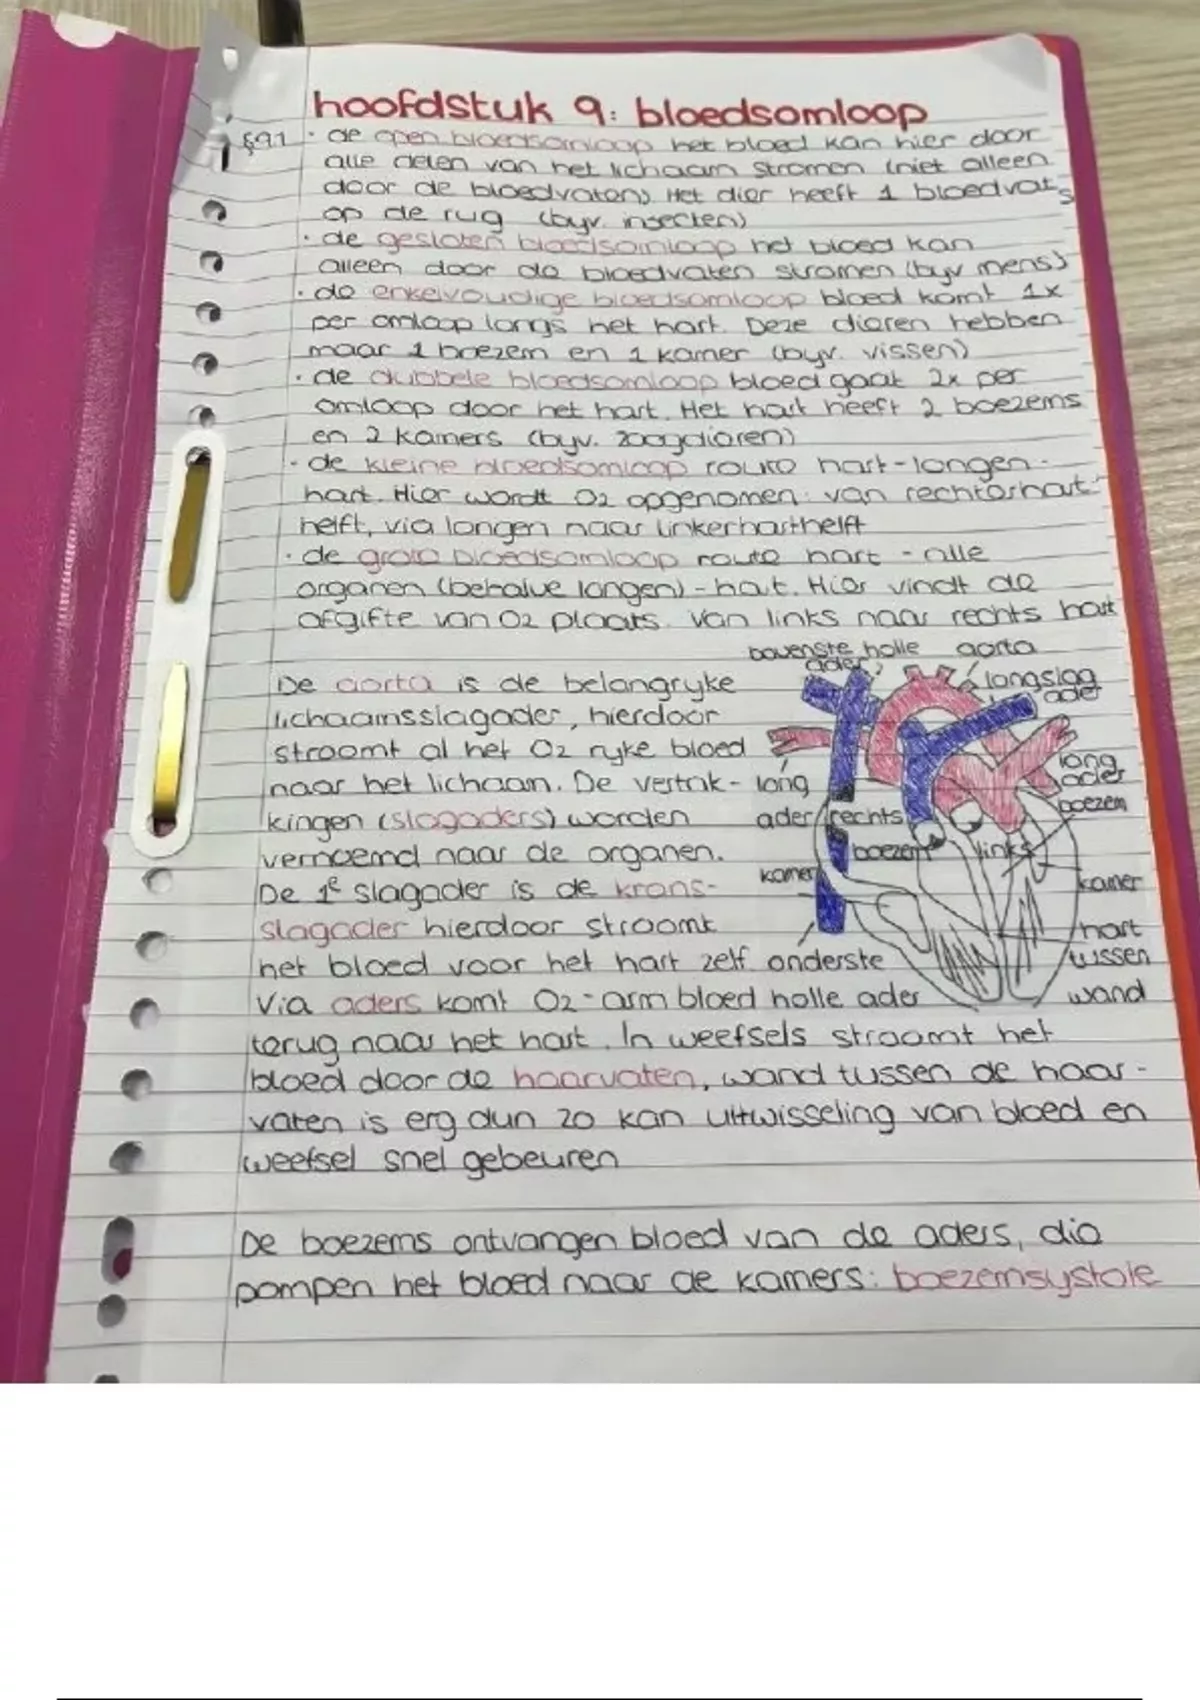 hoofdstuk 9: bloedsomloop
§9.1 · de open bloedsomloop het bloed kan hier door
alle delen van het lichaam stromen (niet alleen
door de bloedvaten). Het dier heeft 1 bloedvat
op de rug (bijv. insecten)
· de gesloten bloedsomloop het bloed kan
alleen door de bloedvaten stromen (bijv mens)
· de enkelvoudige bloedsomloop bloed komt 1x
per omloop langs het hart. Deze dieren hebben
maar 1 boezem en 1 kamer (bijv. vissen)
· de dubbele bloedsomloop bloed gaat 2x per
omloop door het hart. Het hart heeft 2 boezems
en 2 kamers (bijv. zoogdieren)
· de kleine bloedsomloop route hart-longen-
hart. Hier wordt O2 opgenomen: van rechterhart-
helft, via longen naar linkerharthelft
· de grote bloedsomloop route hart - alle
organen (behalve longen) - hart. Hier vindt de
afgifte van O2 plaats. Van links naar rechts hart
bovenste holle ader
aorta
longslagader
De aorta is de belangrijke
lichaamsslagader, hierdoor
stroomt al het O2 rijke bloed
naar het lichaam. De vertak-
kingen (slagaders) worden
vernoemd naar de organen.
De 1e slagader is de krans-
slagader hierdoor stroomt
het bloed voor het hart zelf.
Via aders komt O2-arm bloed
long
ader
rechts
boezem
kamer
long
ader
boezem
links
kamer
hart
tussen
wand
onderste
holle ader
terug naar het hart. In weefsels stroomt het
bloed door de haarvaten, wand tussen de haar-
vaten is erg dun zo kan uitwisseling van bloed en
weefsel snel gebeuren
De boezems ontvangen bloed van de aders, die
pompen het bloed naar de kamers: boezemsystole